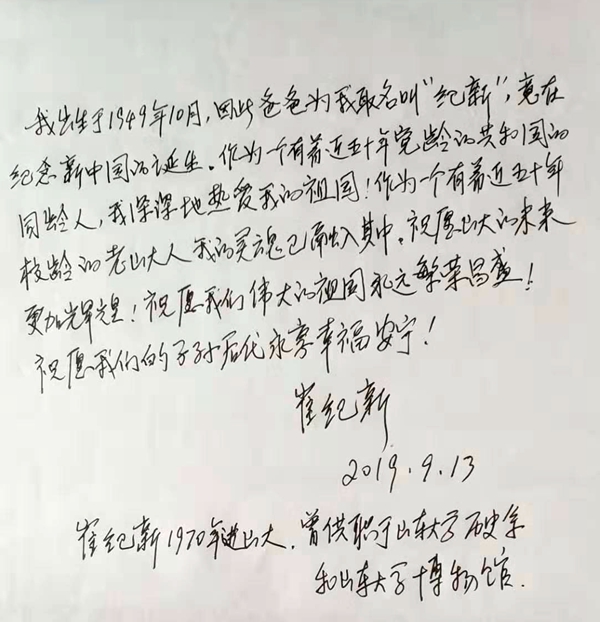 我出生于1949年10月,因此爸爸为我取名叫“纪新”,意在
纪念新中国的诞生。作为一个有着近五十年党龄的共和国的
同龄人,我深深地热爱我的祖国!作为一个有着近五十年
校龄的老山大人我的灵魂已融入其中。祝愿山大的未来
更加辉煌!祝愿我们伟大的祖国永远繁荣昌盛!
祝愿我们的子孙后代永享幸福安宁!
崔纪新
2019.9.13
崔纪新1970年进山大,曾供职于山东大学历史系
和山东大学博物馆.